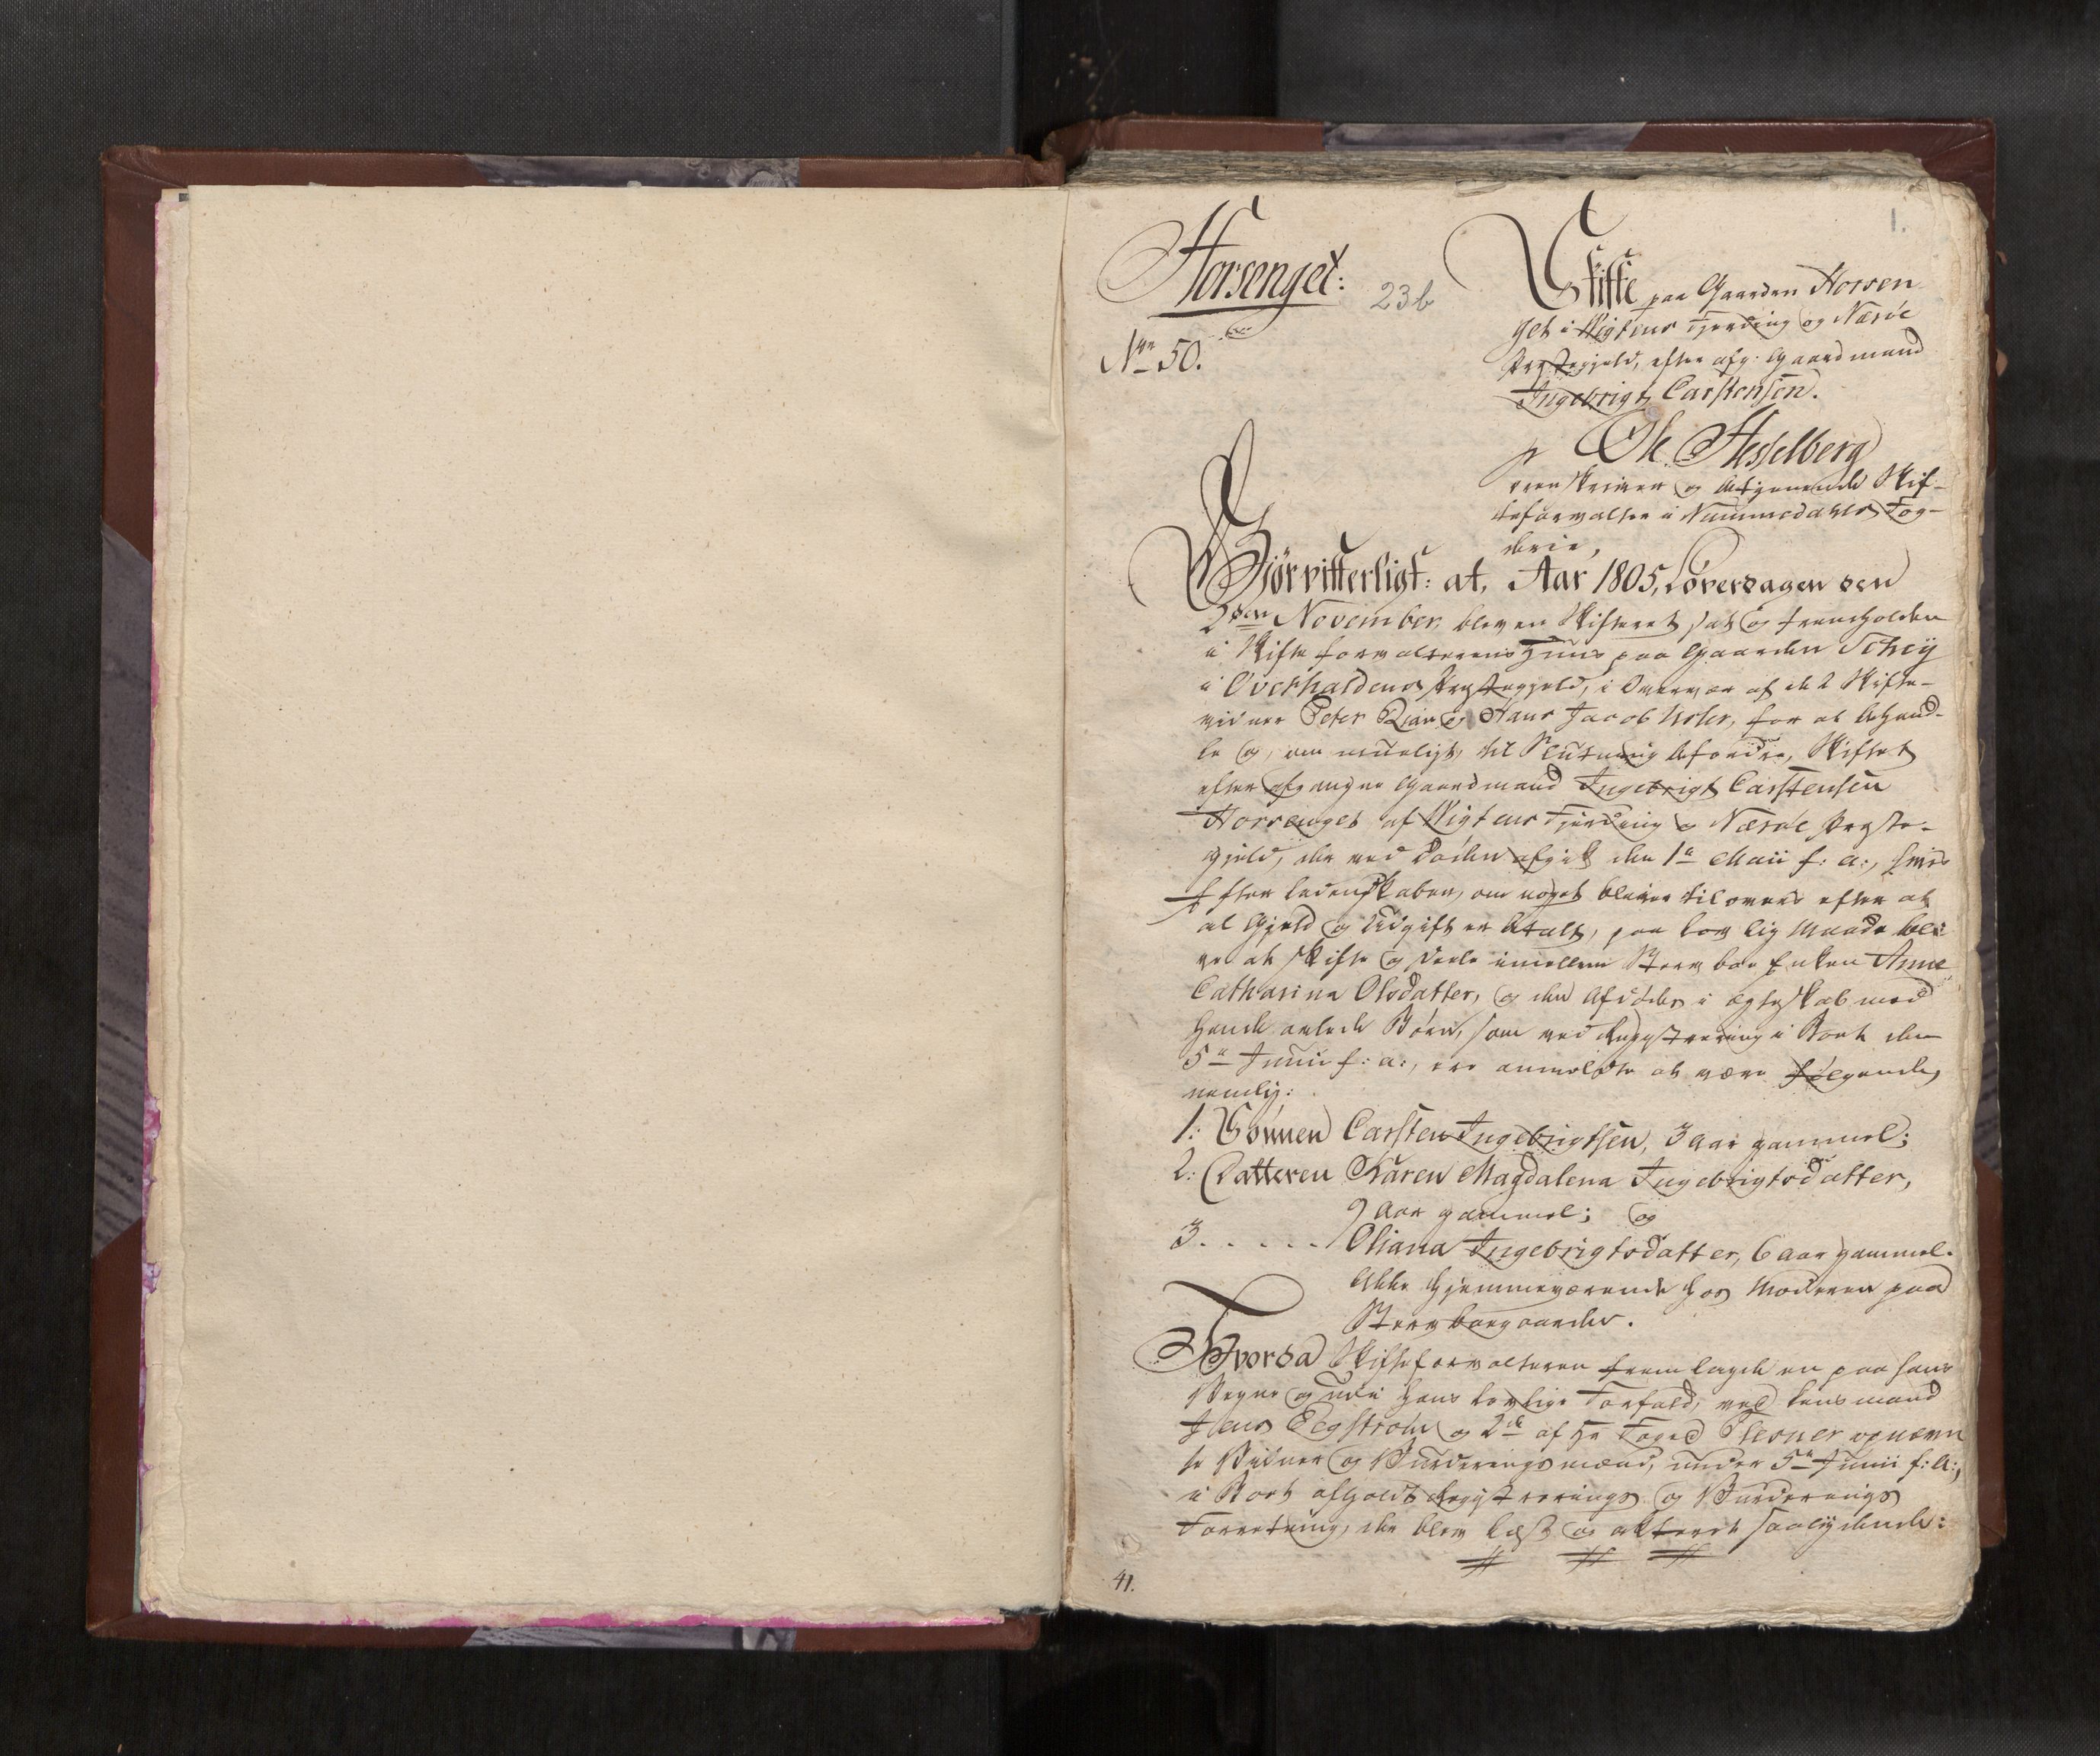 1.
Horsenget:
23b
No 50.
Skifte paa Gaarden Horsen
get i Vigtens Fjerding og Nærøe
Præstegjeld, efter afg: Gaardmand
Ingebrigt Carstensen.
Ole Hesselberg
Sorenskriver og betjenende Skif-
teforvalter i Nummedahls Fog-
derie,
Gjör vitterligt: at, Aar 1805, Löverdagen den
2den November, blev en Skifteret sat og fremholden
i Skifteforvalterens Huus paa Gaarden Schey
i Overhaldens Præstegjeld, i Overvær af de 2 Skifte-
vidner Peter og Hans Jacob, for at behand-
le og, om mueligt, til Slutning befordre, Skiftet
efter afgangne Gaardmand Ingebrigt Carstensen
Horsenget af Vigtens Fjerding og Næröe Præste-
gjeld, der ved Döden afgik den 1te Maii f: a:, hvis
Efterladenskaber, om noget bliver tilovers efter at
al Gjeld og Udgift er betalt, paa lovlig Maade bli-
ve at skifte og deele imellem Sterv boe Enken Anne
Catharina Olsdatter, og den Afdödes i Ægteskab med
hende avlede Börn, som ved Registrering i Boet den
5te Junii f: a:, ere anmeldte at være fölgende,
nemlig:
1: Sönnen Carsten Ingebrigtsen, 3 Aar gammel;
2: Datteren Karen Magdalena Ingebrigtsdatter,
9 Aar gammel; og
3. . . . . . Oliana Ingebrigtsdatter, 6 Aar gammel.
Alle hjemmeværende hos Moderen paa
Stervboegaarden.
Hvorda Skifteforvalteren fremlagde en paa hans
Vegne og udi hans lovlige Forfald, ved Lensmand
Jens Eegström og 2de af Hr Foged Plesner opnævn
te Vidner og Vurderingsmænd, under 5te Junii f: a:,
i Boet afholdt Registrerings og Vurderings
Forretning, der blev læst og akteret saalydende:
41.